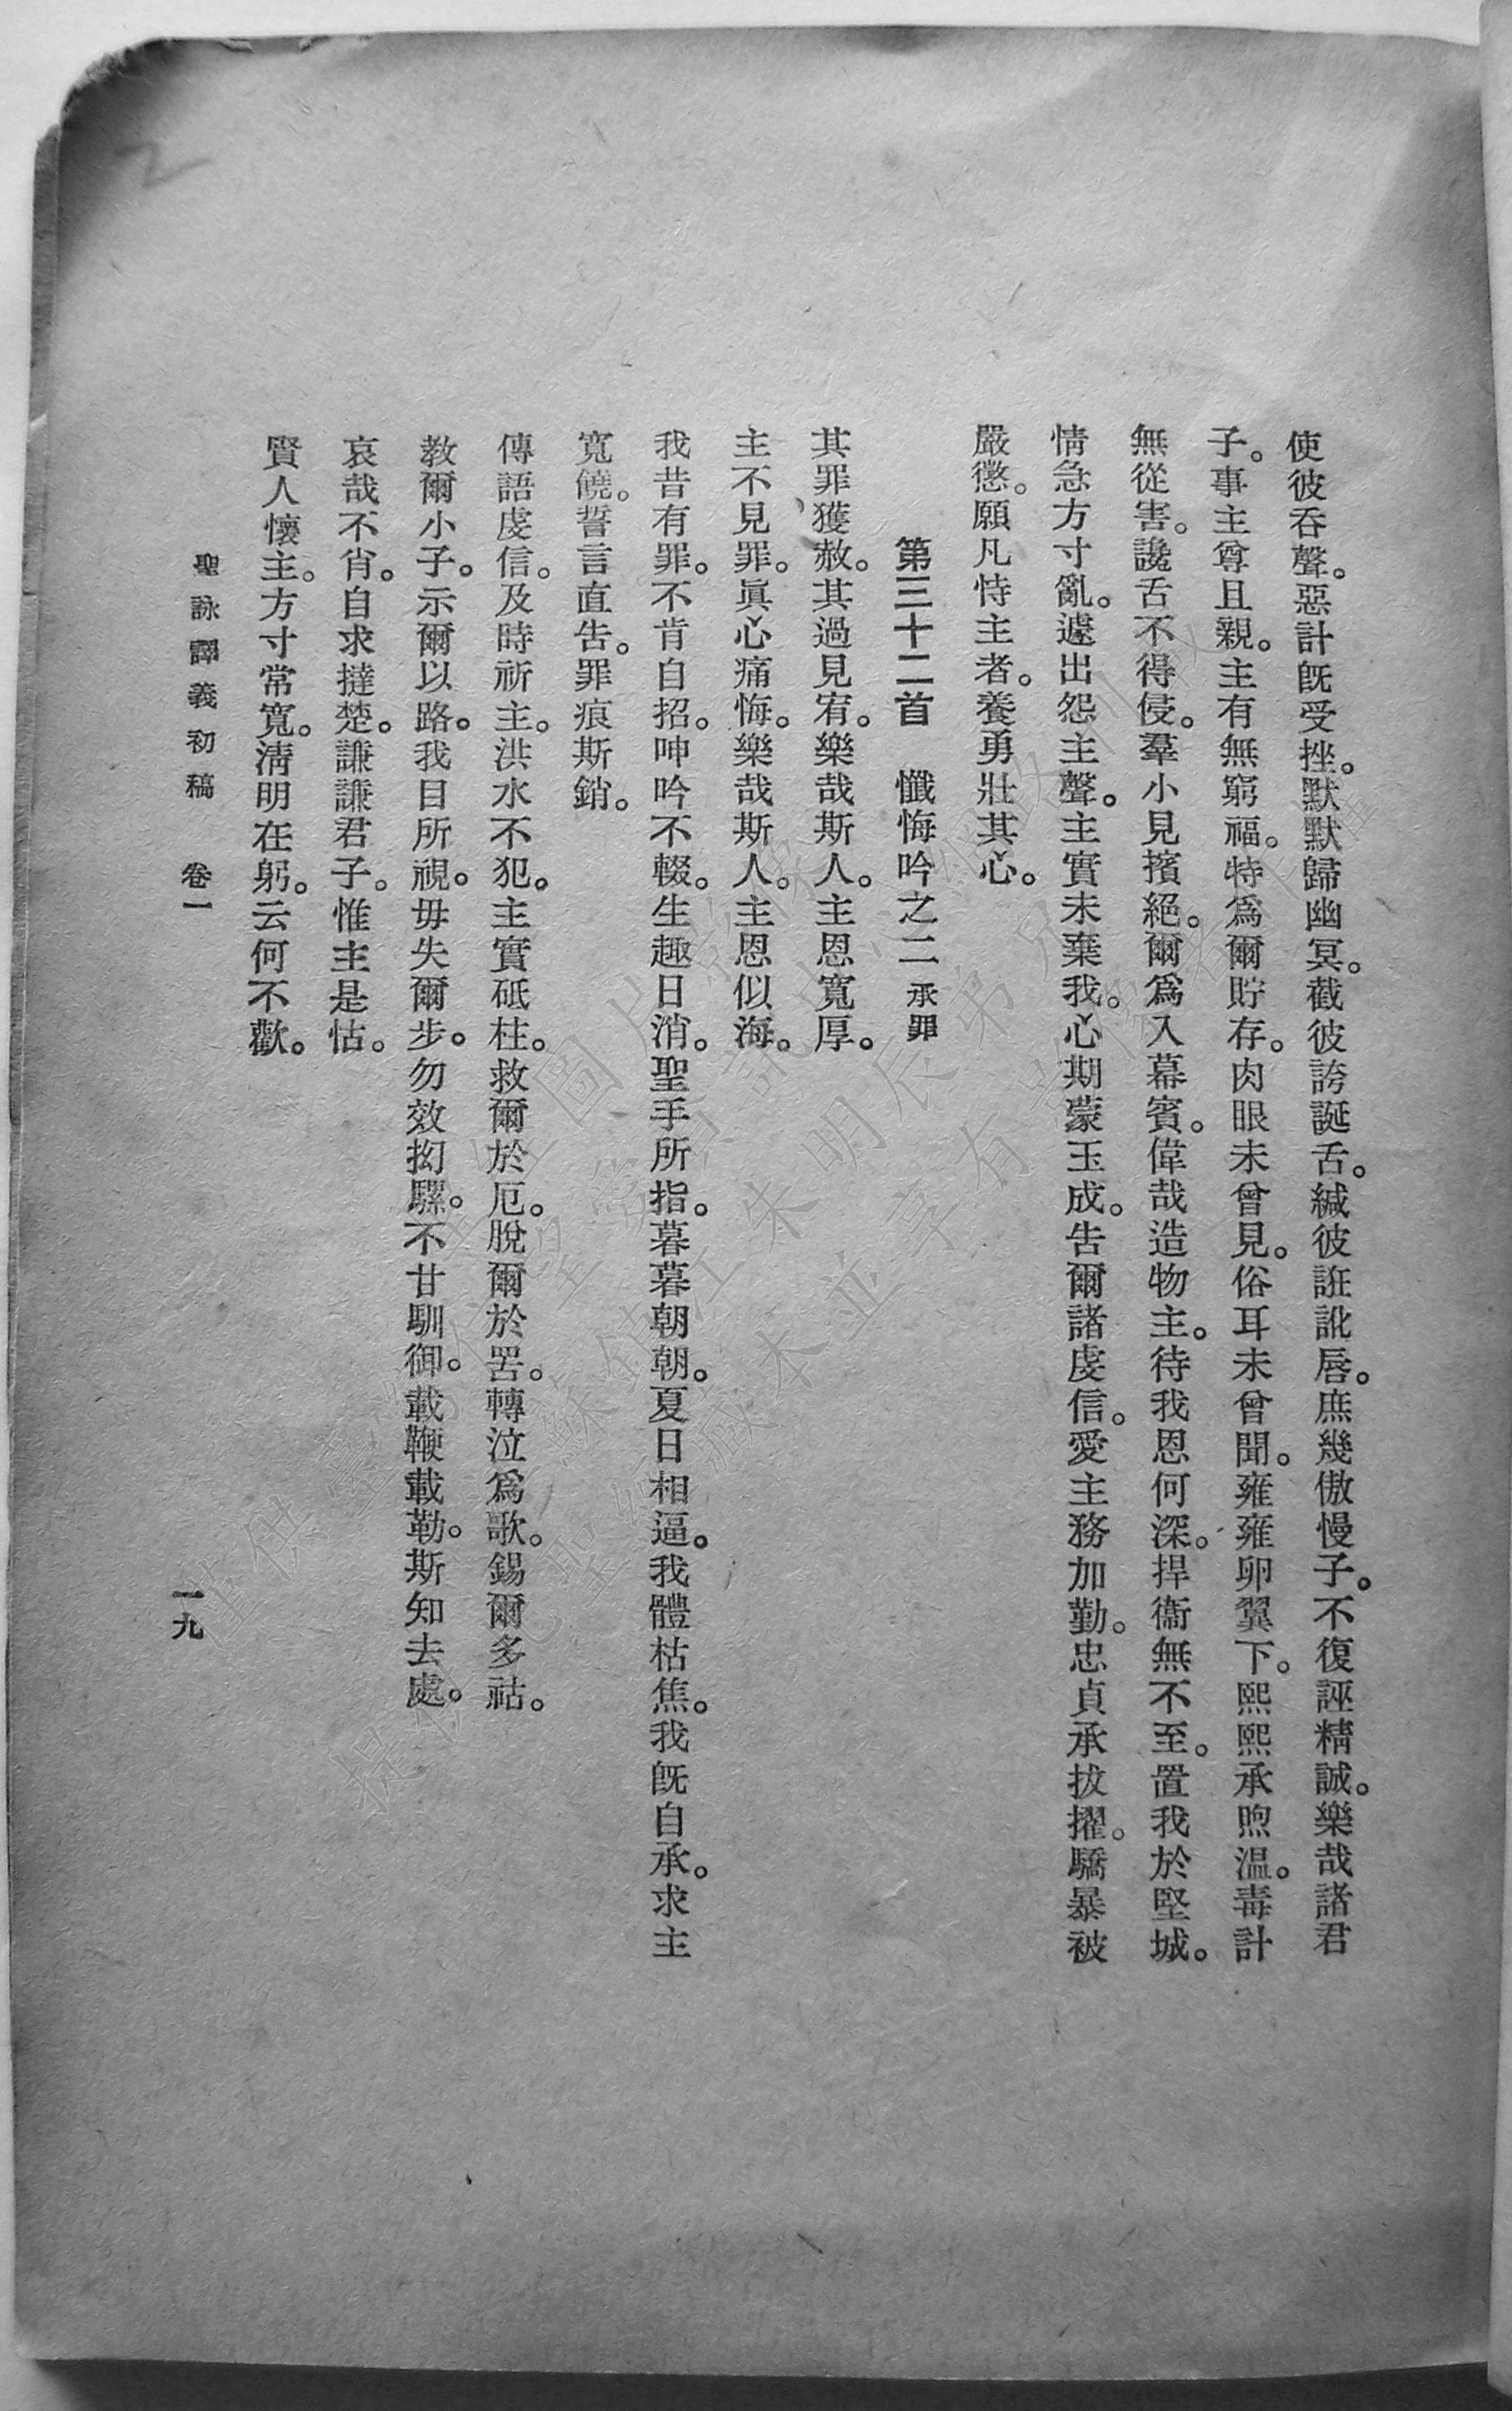 使彼吞聲。惡計旣受挫。默默歸幽冥。截彼誇誕舌。緘彼誑訛唇。庶幾傲慢子。不復誣精誠。樂哉諸君
子。事主尊且親。主有無窮福。特爲爾貯存。肉眼未曾見。俗耳未曾聞。雍雍卵翼下。熙熙承煦溫。毒計
無從害。讒舌不得侵。羣小見擯絕。爾爲入幕賓。偉哉造物主。待我恩何深。捍衞無不至。置我於堅城。
情急方寸亂。遽出怨主聲。主實未棄我。心期蒙玉成。告爾諸虔信。愛主務加勤。忠貞承拔擢。驕暴被
嚴懲。願凡恃主者。養勇壯其心。
第三十二首 懺悔吟之二 承罪
其罪獲赦。其過見宥。樂哉斯人。主恩寬厚。
主不見罪。眞心痛悔。樂哉斯人。主恩似海。
我昔有罪。不肯自招。呻吟不輟。生趣日消。聖手所指。暮暮朝朝。夏日相逼。我體枯焦。我旣自承。求主
寬饒。誓言直告。罪痕斯銷。
傳語虔信。及時祈主。洪水不犯。主實砥柱。救爾於厄。脫爾於罟。轉泣爲歌。錫爾多祜。
教爾小子。示爾以路。我目所視。毋失爾步。勿效拗騾。不甘馴御。載鞭載勒。斯知去處。
哀哉不肖。自求撻楚。謙謙君子。惟主是怙。
賢人懷主。方寸常寬。淸明在躬。云何不歡。
聖詠譯義初稿 卷一
一九